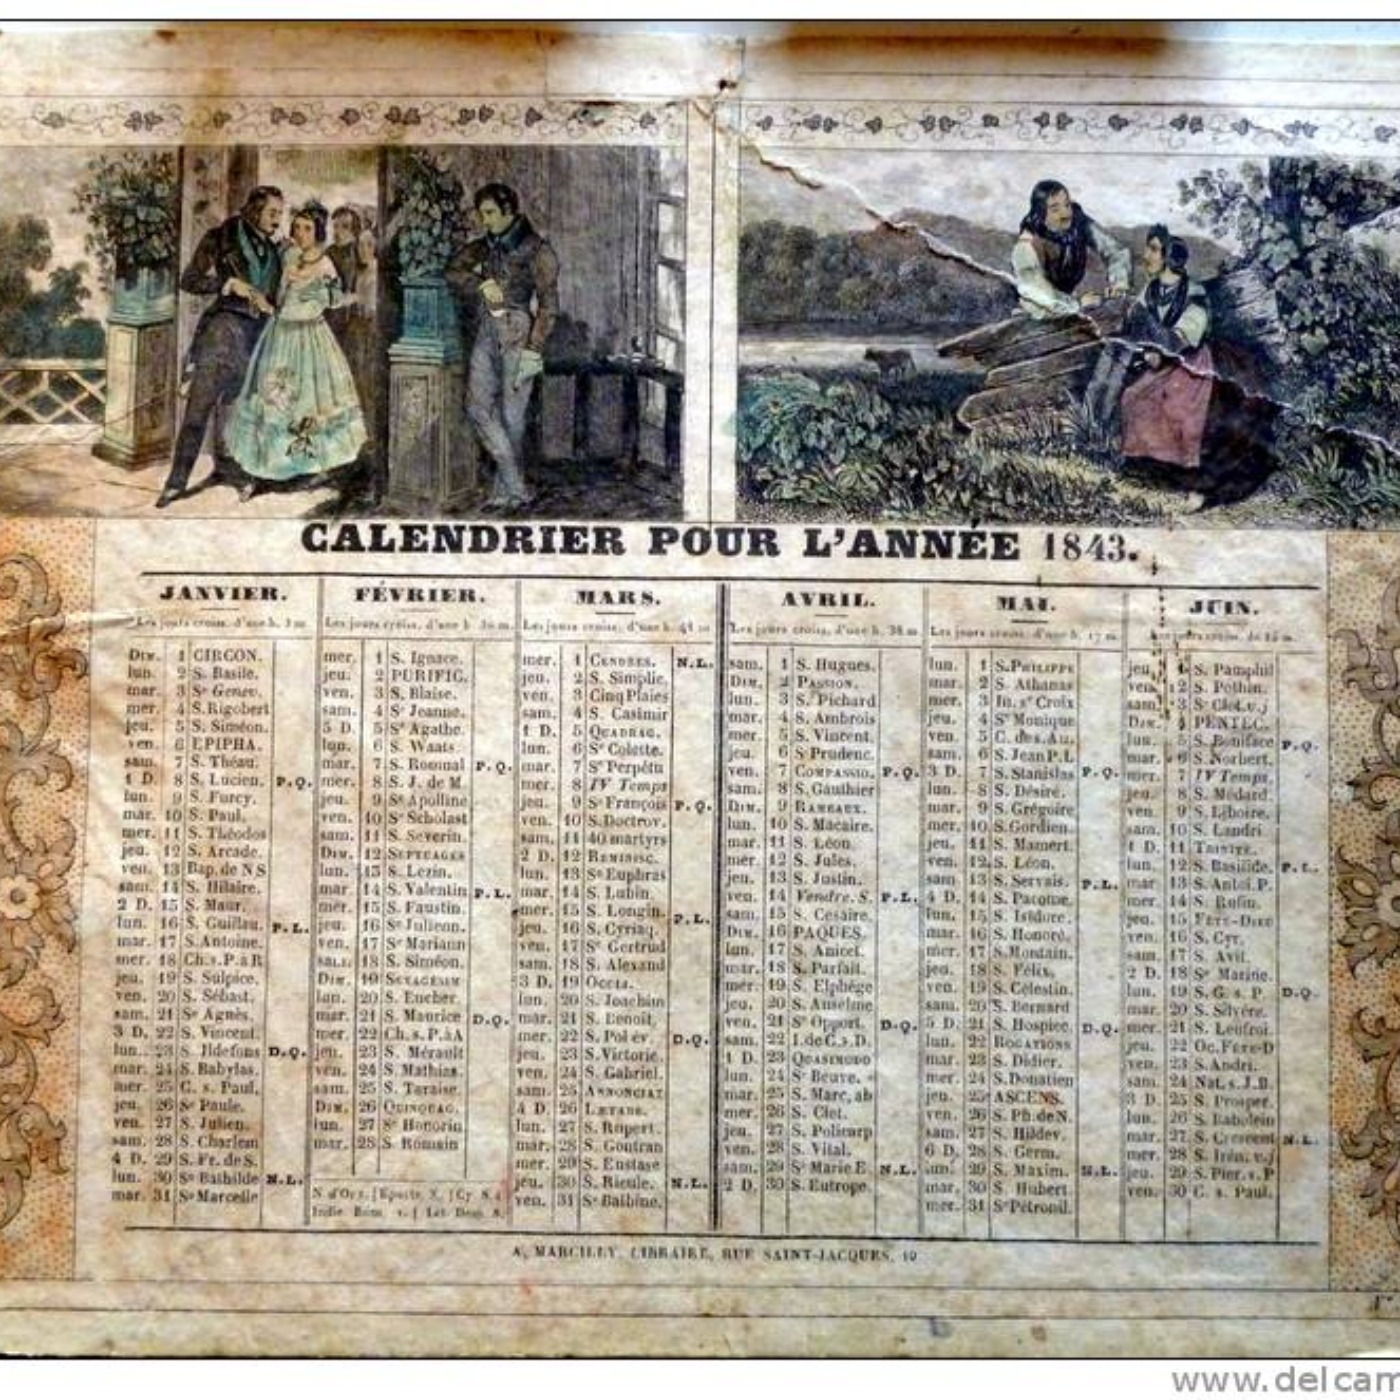 CALENDRIER POUR L'ANNÉE 1843.
JANVIER.
Les jours croiss. d'une h. 3 m.
Dim. 1 CIRCON.
lun. 2 S. Basile.
mar. 3 Se Genev.
mer. 4 S. Rigobert
jeu. 5 S. Siméon.
ven. 6 EPIPHA.
sam. 7 S. Théau.
1 D. 8 S. Lucien. P.Q.
lun. 9 S. Furcy.
mar. 10 S. Paul.
mer. 11 S. Théodos
jeu. 12 S. Arcade.
ven. 13 Bap. de N S
sam. 14 S. Hilaire.
2 D. 15 S. Maur.
lun. 16 S. Guillau. P.L.
mar. 17 S. Antoine.
mer. 18 Ch.s.P.à R
jeu. 19 S. Sulpice.
ven. 20 S. Sébast.
sam. 21 Se Agnès.
3 D. 22 S. Vincent.
lun. 23 S. Ildefons D.Q.
mar. 24 S. Babylas.
mer. 25 C. s. Paul.
jeu. 26 Se Paule.
ven. 27 S. Julien.
sam. 28 S. Charlem
4 D. 29 S. Fr. de S.
lun. 30 Se Bathilde N.L.
mar. 31 Se Marcelle
FÉVRIER.
Les jours croiss. d'une h. 30 m.
mer. 1 S. Ignace.
jeu. 2 PURIFIC.
ven. 3 S. Blaise.
sam. 4 Se Jeanne.
5 D. 5 Se Agathe.
lun. 6 S. Waats
mar. 7 S. Romual P.Q.
mer. 8 S. J. de M.
jeu. 9 Se Apolline
ven. 10 Se Scholast
sam. 11 S. Severin.
Dim. 12 SEPTUAGES
lun. 13 S. Lezin.
mar. 14 S. Valentin P.L.
mer. 15 S. Faustin.
jeu. 16 Se Julienn.
ven. 17 Se Mariann
sam. 18 S. Siméon.
Dim. 19 SEXAGESIM
lun. 20 S. Eucher.
mar. 21 S. Maurice D.Q.
mer. 22 Ch.s.P.à A
jeu. 23 S. Mérault
ven. 24 S. Mathias.
sam. 25 S. Taraise.
Dim. 26 QUINQUAG.
lun. 27 Se Honorin
mar. 28 S. Romain
N d'Or
MARS.
Les jours croiss. d'une h. 48 m
mer. 1 CENDRES. N.L.
jeu. 2 S. Simplic.
ven. 3 Cinq Plaies
sam. 4 S. Casimir
1 D. 5 QUADRAG.
lun. 6 Se Colette.
mar. 7 Se Perpétu
mer. 8 IV Temps
jeu. 9 Se François P.Q.
ven. 10 S. Doctrov.
sam. 11 40 martyrs
2 D. 12 REMINISC.
lun. 13 Se Euphras
mar. 14 S. Lubin.
mer. 15 S. Longin. P.L.
jeu. 16 S. Cyriaq.
ven. 17 Se Gertrud
sam. 18 S. Alexand
3 D. 19 OCULI.
lun. 20 S. Joachim
mar. 21 S. Benoit,
mer. 22 S. Pol ev. D.Q.
jeu. 23 S. Victorie.
ven. 24 S. Gabriel.
sam. 25 ANNONCIAT
4 D. 26 LÆTARE.
lun. 27 S. Rupert.
mar. 28 S. Gontran
mer. 29 S. Eustase
jeu. 30 S. Rieule. N.L.
ven. 31 Se Balbine.
AVRIL.
Les jours croiss. d'une h. 38 m.
sam. 1 S. Hugues.
Dim. 2 PASSION.
lun. 3 S. Richard
mar. 4 S. Ambrois
mer. 5 S. Vincent.
jeu. 6 S. Prudenc.
ven. 7 COMPASSIO. P.Q.
sam. 8 S. Gauthier
Dim. 9 RAMEAUX.
lun. 10 S. Macaire.
mar. 11 S. Léon.
mer. 12 S. Jules.
jeu. 13 S. Justin.
ven. 14 Vendre. S. P.L.
sam. 15 S. Cesaire.
Dim. 16 PAQUES.
lun. 17 S. Anicet.
mar. 18 S. Parfait.
mer. 19 S. Elphége
jeu. 20 S. Anselme
ven. 21 Se Opport. D.Q.
sam. 22
1 D. 23 QUASIMODO
lun. 24 Se Beuve.
mar. 25 S. Marc, ab
mer. 26 S. Clet.
jeu. 27 S. Policarp
ven. 28 S. Vital.
sam. 29 Se Marie E. N.L.
2 D. 30 S. Eutrope.
MAI.
Les jours croiss. d'une h. 17 m.
lun. 1 S. PHILIPPE
mar. 2 S. Athanas
mer. 3 In. se Croix
jeu. 4 Se Monique
ven. 5 C. des. Au.
sam. 6 S. Jean P. L
3 D. 7 S. Stanislas P.Q.
lun. 8 S. Désiré.
mar. 9 S. Grégoire
mer. 10 S. Gordien.
jeu. 11 S. Mamert.
ven. 12 S. Léon.
sam. 13 S. Servais. P.L.
4 D. 14 S. Pacome.
lun. 15 S. Isidore.
mar. 16 S. Honoré.
mer. 17 S. Montain.
jeu. 18 S. Félix.
ven. 19 S. Célestin.
sam. 20 S. Bernard
5 D. 21 S. Hospice. D.Q.
lun. 22 ROGATIONS
mar. 23 S. Didier.
mer. 24 S. Donatien
jeu. 25 ASCENS.
ven. 26 S. Ph. de N.
sam. 27 S. Hildev.
6 D. 28 S. Germ.
lun. 29 S. Maxim. N.L.
mar. 30 S. Hubert
mer. 31 Se Pétronil.
JUIN.
jeu. 1 S. Pamphil
ven. 2 S. Pothin.
sam. 3 Se Clot. v.j
Dim. 4 PENTEC.
lun. 5 S. Boniface P.Q.
mar. 6 S. Norbert.
mer. 7 IV Temps.
jeu. 8 S. Médard.
ven. 9 S. Liboire.
sam. 10 S. Landri
1 D. 11 TRINITÉ.
lun. 12 S. Basilide. P.L.
mar. 13 S. Antoi. P.
mer. 14 S. Rufin.
jeu. 15 FÊTE-DIEU
ven. 16 S. Cyr.
sam. 17 S. Avit.
2 D. 18 Se Marine.
lun. 19 S. G. s. P. D.Q.
mar. 20 S. Silvère.
mer. 21 S. Leufroi.
jeu. 22 Oc. FÊTE-D
ven. 23 S. André.
sam. 24 Nat. s. J.B.
3 D. 25 S. Prosper.
lun. 26 S. Babolein
mar. 27 S. Crescent N.L.
mer. 28 S. Irén. v.j
jeu. 29 S. Pier. s. P
ven. 30 C. s. Paul.
A. MARCILLY, LIBRAIRE, RUE SAINT-JACQUES, 10
www.delcam